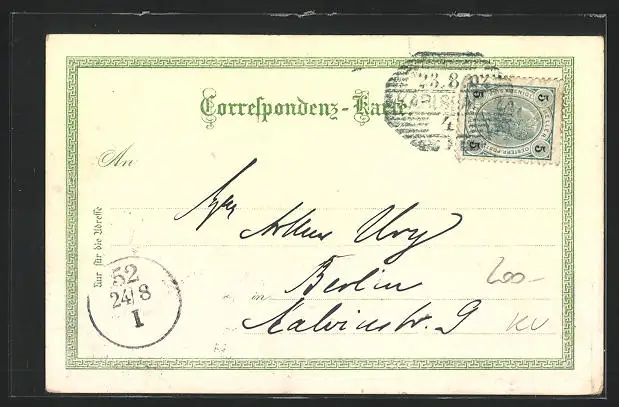 23.8.02
KARLSBAD
4
Correspondenz-Karte.
5 5
5 5
An
Nur für die Adresse
Arthur Ury
in Berlin
Kalvinstr. 9
52
24/8
I
200-
KV